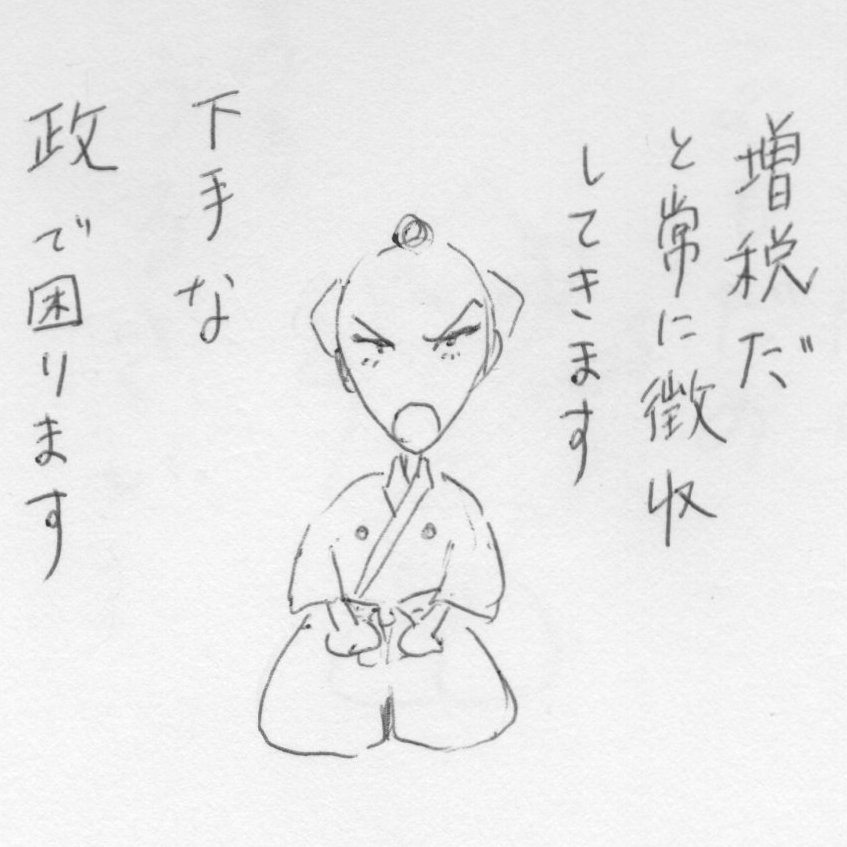 増税だ
と常に徴収
してきます
下手な
政で困ります